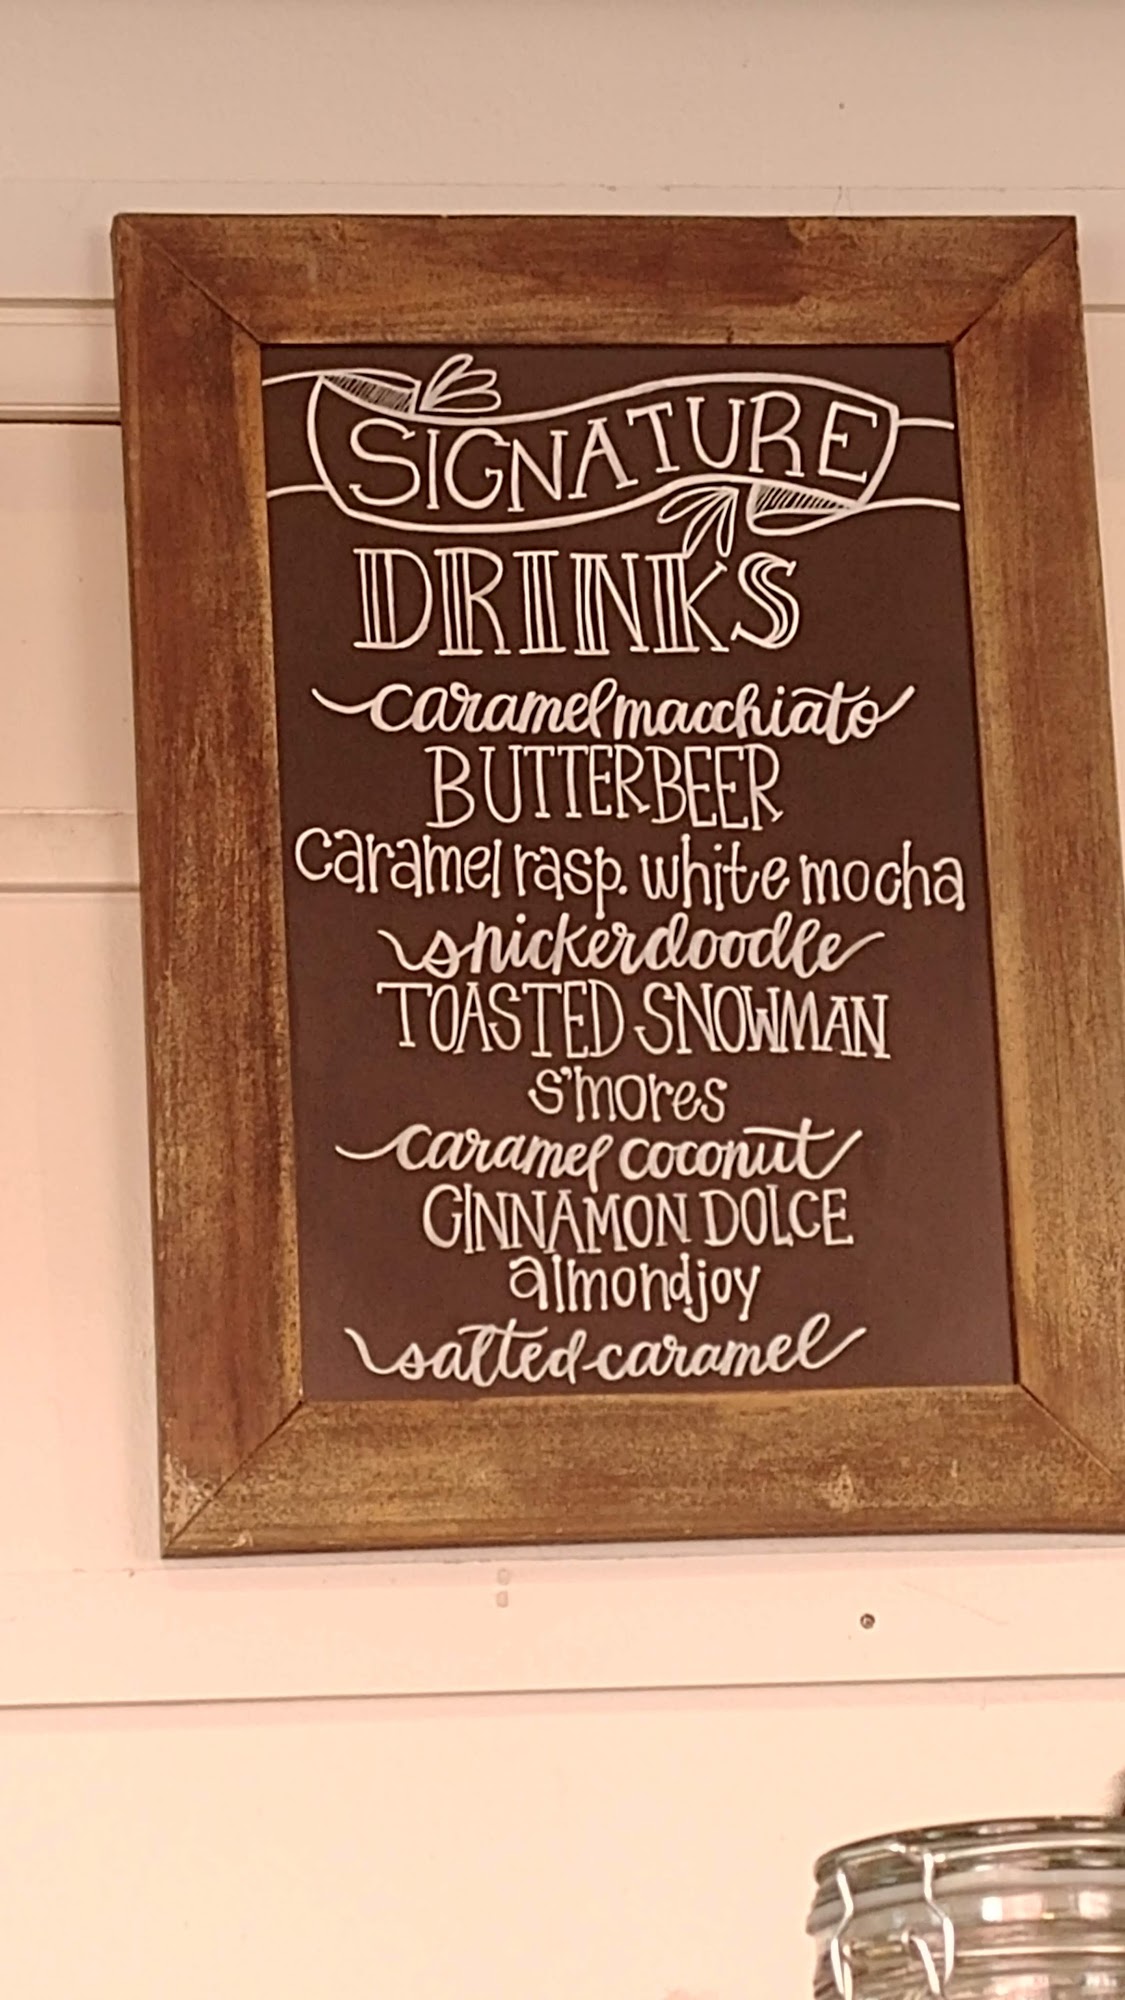 SIGNATURE
DRINKS
caramel macchiato
BUTTERBEER
caramel rasp. white mocha
snickerdoodle
TOASTED SNOWMAN
s'mores
caramel coconut
CINNAMON DOLCE
almond joy
salted caramel